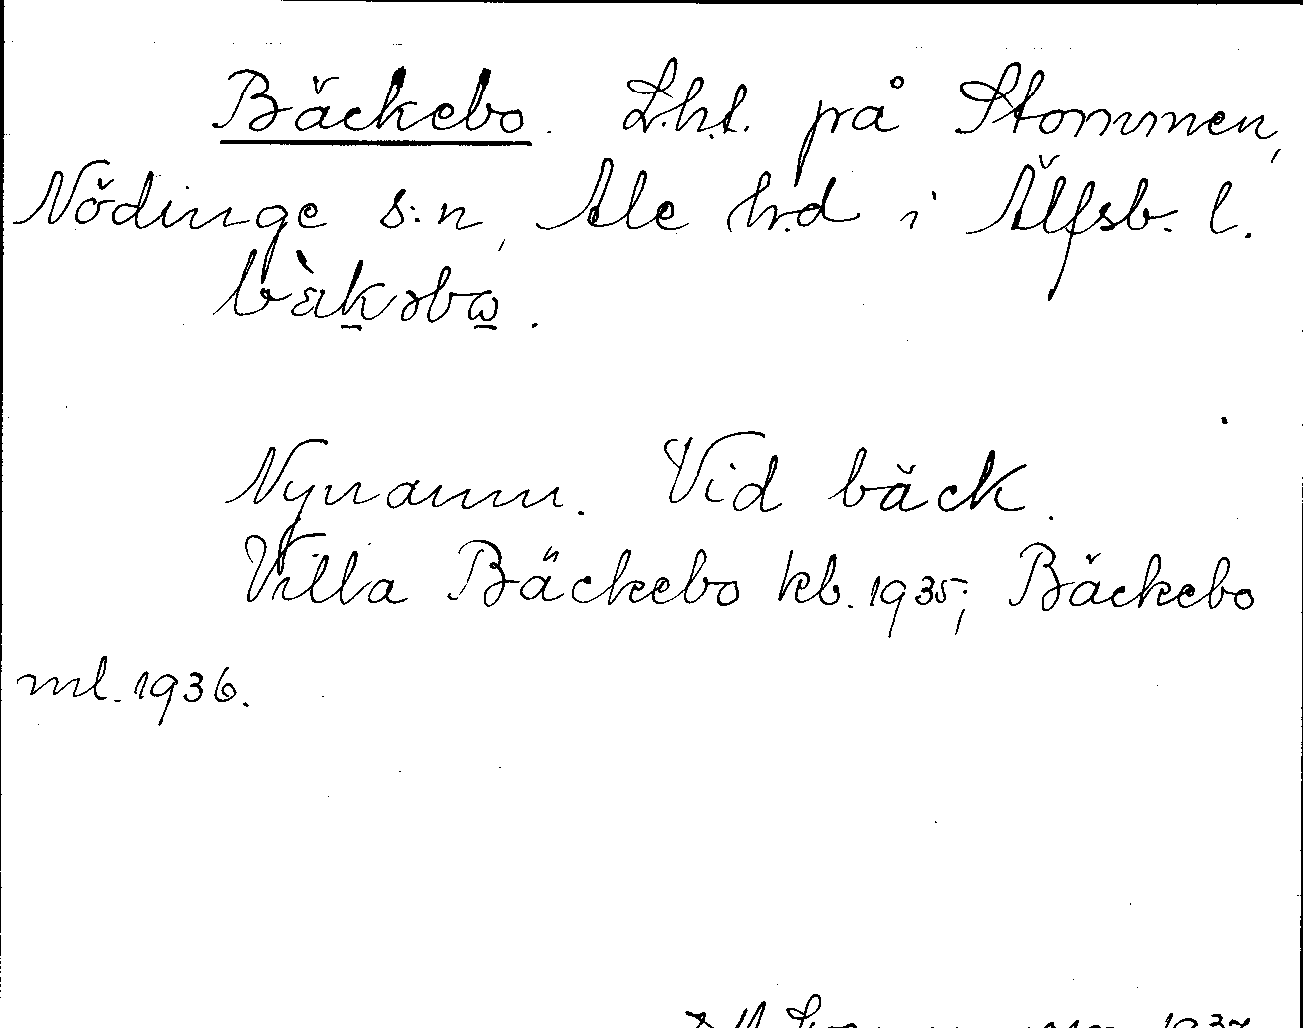 Bäckebo. L.h.t. på Stommen,
Nödinge s:n, Ale h.d i Älfsb. l.
bàkəbω.
Nynamn. Vid bäck.
Villa Bäckebo kb. 1935; Bäckebo
ml. 1936.
1937